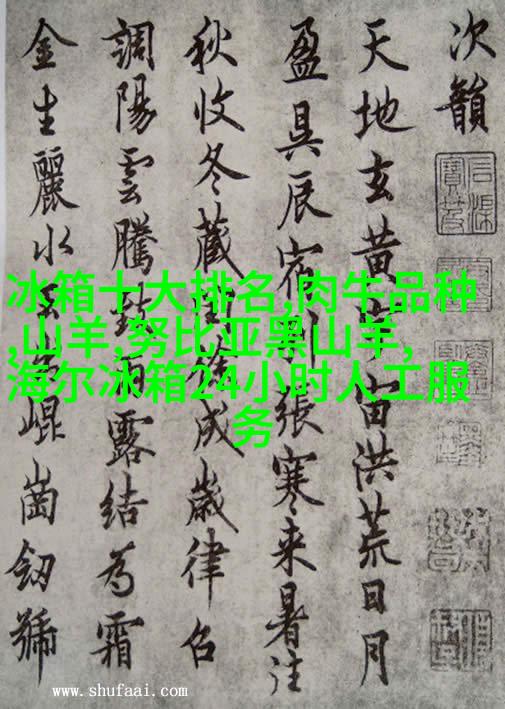 次韻
天地玄黄宙洪荒日月
盈昃辰宿列張寒来暑往
秋收冬藏成歲律吕
調陽雲騰露結為霜
金生麗水崐崗劒號
冰箱十大排名,肉牛品种
,山羊,努比亚黑山羊,
海尔冰箱24小时人工服
务
www.shufaai.com